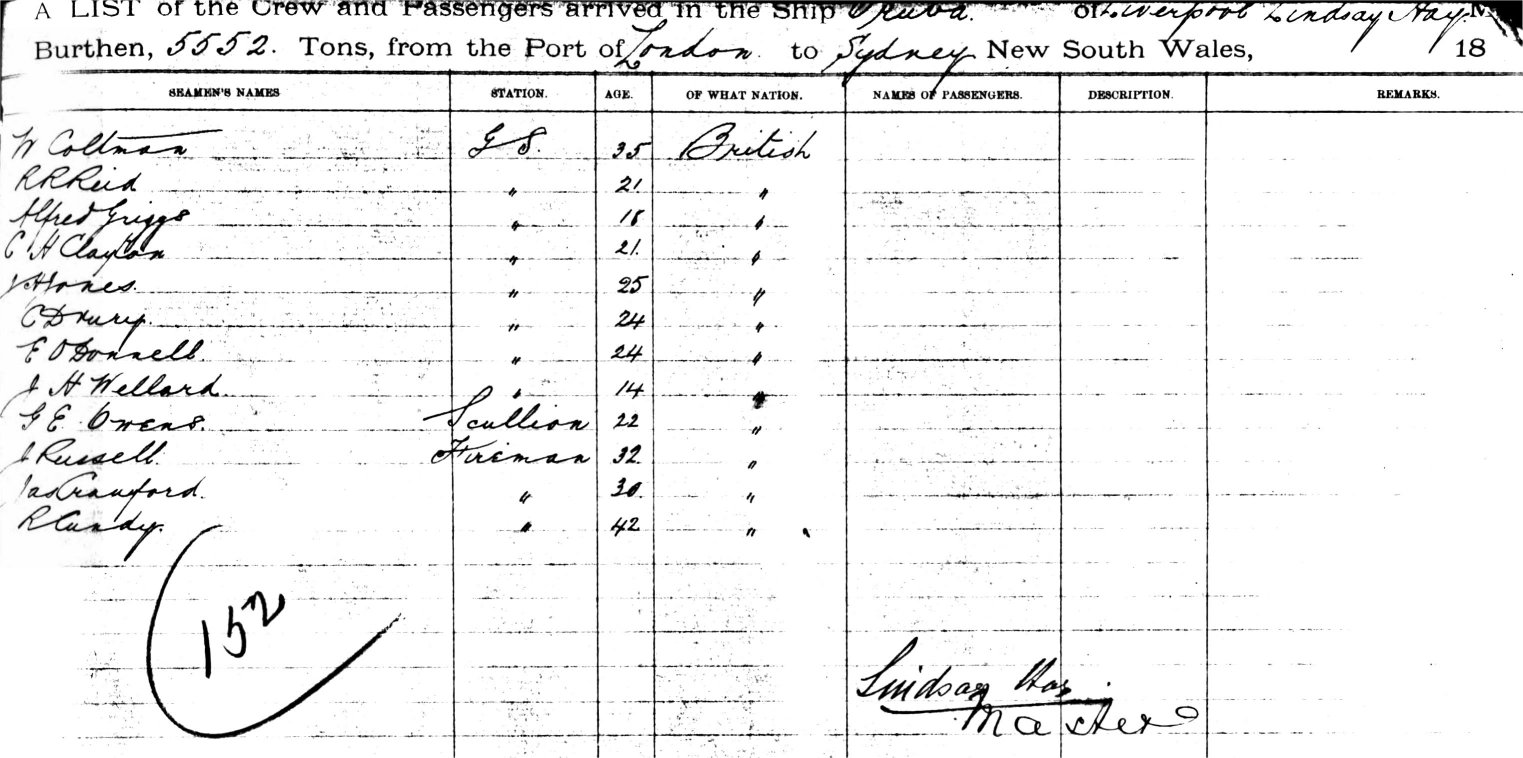 A LIST of the Crew and Passengers arrived in the Ship Oruba. of Liverpool Lindsay Hay M
Burthen, 5552. Tons, from the Port of London to Sydney New South Wales, 18
SEAMEN'S NAMES STATION. AGE. OF WHAT NATION. NAMES OF PASSENGERS. DESCRIPTION. REMARKS.
W Coltman G S. 35 British
R R Reid " 21 "
Alfred Griggs " 18 "
C H Clayton " 21. "
J H Jones. " 25 "
C Drury. " 24 "
E O'Donnell. " 24 "
J H Wellard " 14 "
G E Owens. Scullion 22 "
J Russell. Fireman 32. "
Jas Crawford. " 30. "
R Cundy. " 42 "
152
Lindsay Hay.
Master